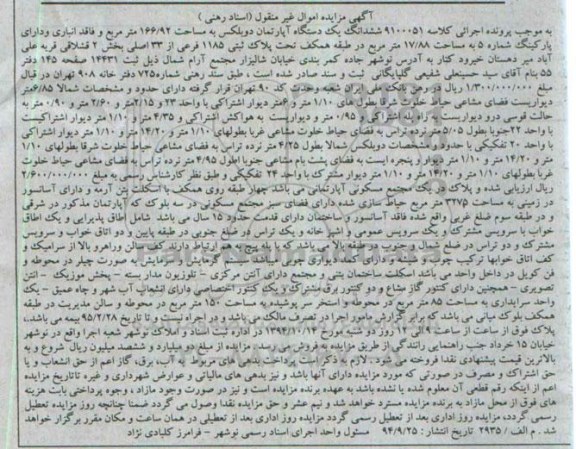 آگهی مزایده اموال غیر منقول (اسناد رهنی)
به موجب پرونده اجرائی کلاسه ۹۱۰۰۰۵۱ ششدانگ یک دستگاه آپارتمان دوبلکس به مساحت ۱۶۶/۹۲ متر مربع و فاقد انباری ودارای
پارکینگ شماره ۵ به مساحت ۱۷/۸۸ متر مربع در طبقه همکف تحت پلاک ثبتی ۱۱۸۵ فرعی از ۳۳ اصلی بخش ۲ قشلاقی قریه علی
آباد میر دهستان خیرود کنار به آدرس نوشهر جاده کمر بندی خیابان شالیزار مجتمع آرام شمال ذیل ثبت ۱۴۴۳۱ صفحه ۱۴۵ دفتر
۵۵ بنام آقای سید حسینعلی شفیعی گلپایگانی ثبت و سند صادر شده است ، طبق سند رهنی شماره۷۲۵ دفتر خانه ۹۰۸ تهران در قبال
مبلغ ۱/۳۰۰/۰۰۰/۰۰۰ ریال در رهن بانک ملی ایران شعبه وحدت کد ۹۰ تهران قرار گرفته دارای حدود و مشخصات شمالا ۶/۸۵متر
دیواریست فضای مشاعی حیاط خلوت شرقا بطول های ۱/۱۰ متر و ۶متر دیوار اشتراکی با واحد ۲۳ و ۲/۱۵متر و ۲/۶۰ متر و ۰/۹۰ متر به
حالت قوسی درو دیواریست به راه پله اشتراکی و ۰/۹۵ متر و دیواریست به هواکش اشتراکی و ۴/۳۵ متر و ۱/۱۰ متر دیوار اشتراکیست
با واحد ۲۲ جنوبا بطول ۵/۰۵ متر نرده تراس به فضای حیاط خلوت مشاعی غربا بطولهای ۱/۱۰ متر و ۱۴/۲۰ متر و ۱/۱۰ متر دیوار اشتراکی
با واحد ۲۰ تفکیکی با حدود و مشخصات دوبلکس شمالا بطول ۴/۲۵ متر نرده تراس به فضای مشاعی حیاط خلوت شرقا بطولهای ۱/۱۰
متر و ۱۴/۲۰ متر و ۱/۱۰ متر دیوار و پنجره ایست به فضای پشت بام مشاعی جنوبا بطول ۴/۹۵ متر نرده تراس به فضای مشاعی حیاط خلوت
غربا بطولهای ۱/۱۰ متر و ۱۴/۲۰ متر و ۱/۱۰ متر دیوار مشترک با واحد ۲۴ تفکیکی و طبق نظر کارشناس رسمی به مبلغ ۲/۶۰۰/۰۰۰/۰۰۰
ریال ارزیابی شده و پلاک در یک مجتمع مسکونی آپارتمانی می باشد چهار طبقه روی همکف با اسکلت بتن آرمه و دارای آسانسور
در زمینی به مساحت ۳۲۷۵ متر مربع حیاط سازی شده دارای فضای سبز مجتمع مسکونی در سه بلوک که آپارتمان مذکور در شرقی
و در طبقه سوم ضلع غربی واقع شده فاقد آسانسور و ساختمان دارای قدمت حدود ۱۵ سال می باشد شامل اطاق پذیرایی و یک اطاق
خواب با سرویس مشترک و یک سرویس عمومی و آشپز خانه و یک تراس در ضلع جنوبی در طبقه پایین و دو اتاق خواب و سرویس
مشترک و دو تراس در ضلع شمال و جنوب در طبقه بالا می باشد که با پله پیچ به هم ارتباط دارند کف سالن وراهرو بالا از سرامیک و
کف اتاق خوابها ترکیب چوب
به صورت چیلر در محوطه و
فن کویل در داخل واحد می باشد اسکلت ساختمان بتنی و مجتمع دارای آنتن مرکزی - تلوزیون مدار بسته - پخش موزیک - آنتن
تصویری - همچنین دارای کنتور گاز مشاع و دو کنتور برق مشترک و یک کنتور اختصاصی دارای انشعاب آب شهر و چاه عمیق - یک
واحد سرایداری به مساحت ۸۵ متر مربع در محوطه و استخر سر پوشیده به مساحت ۱۵۰ متر مربع در محوطه و سالن مدیریت در طبقه
همکف بلوک میانی می باشد که برابر گزارش مامور اجرا در تصرف مالک می باشد و در اجراء نیست و تا تاریخ ۹۵/۲/۲۸ بیمه می باشد.
پلاک فوق از ساعت ۹ الی ۱۲ روز دوشنبه مورخ در اداره ثبت اسناد و املاک نوشهر شعبه اجرا واقع در نوشهر
خیابان ۱۵ خرداد جنب راهنمایی رانندگی از طریق مزایده به فروش می رسد. مزایده از مبلغ دو میلیارد و ششصد میلیون ریال شروع و به
بالاترین قیمت پیشنهادی نقدا فروخته می شود. لازم به ذکر است پرداخت بدهی های مربوط به آب، برق، گاز اعم از حق انشعاب و یا
حق اشتراک و مصرف در صورتی که مورد مزایده دارای آنها باشد و نیز بدهی های مالیاتی و عوارض شهرداری و غیره تاتاریخ مزایده
اعم از اینکه رقم قطعی آن معلوم شده یا نشده باشد به عهده برنده مزایده است و نیز در صورت وجود مازاد ، وجوه پرداختی بابت هزینه
های فوق از محل مازاد به برنده مزایده مسترد خواهد شد و نیم عشر و حق مزایده نقدا وصول می گردد ضمنا چنانچه روز مزایده تعطیل
رسمی گردد، مزایده روز اداری بعد از تعطیل رسمی گردد مزایده روز اداری بعد از تعطیلی در همان ساعت و مکان مقرر برگزار خواهد
شد . م الف / ۲۹۳۵ تاریخ انتشار : ۹۴/۹/۲۵ مسئول واحد اجرای اسناد رسمی نوشهر - فرامرز کلبادی نژاد